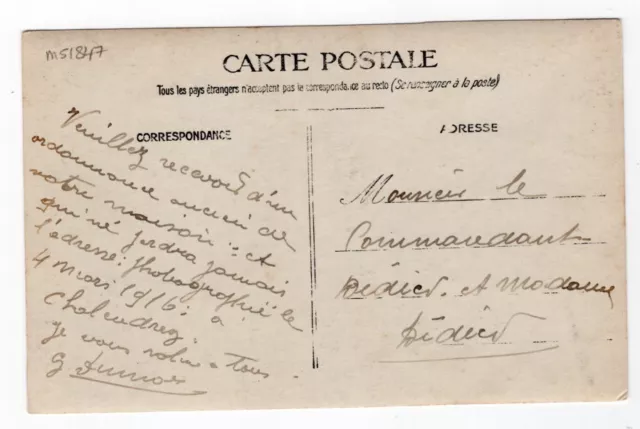 m51847
CARTE POSTALE
Tous les pays étrangers n'acceptent pas la correspondance au recto (Se renseigner à la poste)
CORRESPONDANCE
ADRESSE
Veuillez recevoir d'un
ordonnance ancien de
votre maison: et
qui ne perdra jamais
l'adresse: photographié le
4 mars 1916: à
je vous salue a tous
Monsieur le
Commandant
Bédier et Madame
Bédier